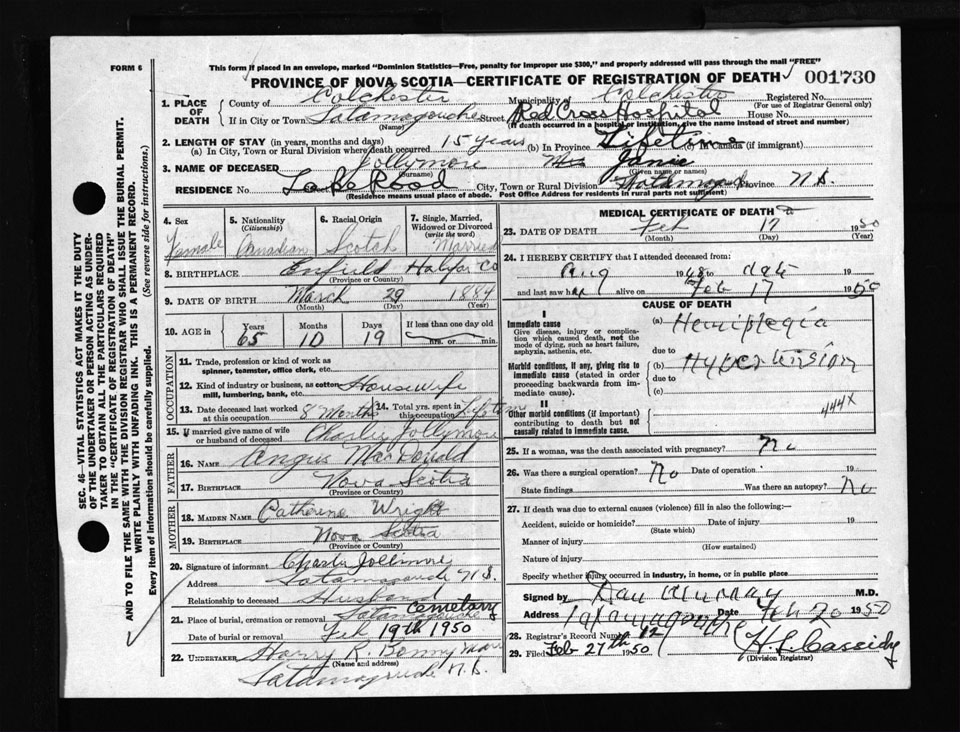 FORM 6
This form if placed in an envelope, marked "Dominion Statistics—Free, penalty for improper use $300," and properly addressed will pass through the mail "FREE"
PROVINCE OF NOVA SCOTIA—CERTIFICATE OF REGISTRATION OF DEATH 001730
1. PLACE OF DEATH
County of Colchester Municipality of Colchester Registered No.
(For use of Registrar General only)
If in City or Town Tatamagouche Street Red Cross Hospital House No.
(Name) (If death occurred in a hospital or institution, give the name instead of street and number)
2. LENGTH OF STAY (in years, months and days)
(a) In City, Town or Rural Division where death occurred 15 years (b) In Province Lifetime In Canada (if immigrant)
3. NAME OF DECEASED Jollymore Mrs Janie
(Surname) (Given name or names)
RESIDENCE No. Street City, Town or Rural Division Province N.S.
(Residence means usual place of abode. Post Office Address for residents in rural parts not sufficient)
4. Sex
Female
5. Nationality
(Citizenship)
Canadian
6. Racial Origin
Scotch
7. Single, Married, Widowed or Divorced
(write the word)
Married
8. BIRTHPLACE Enfield Halifax Co
(Province or Country)
9. DATE OF BIRTH March 29 1884
(Month) (Day) (Year)
10. AGE in
Years Months Days If less than one day old
65 10 19 hrs. or min.
OCCUPATION
11. Trade, profession or kind of work as spinner, teamster, office clerk, etc.
12. Kind of industry or business, as cotton mill, lumbering, bank, etc. Housewife
13. Date deceased last worked at this occupation 8 Months
14. Total yrs. spent in this occupation Lifetime
15. If married give name of wife or husband of deceased Charley Jollymore
FATHER
16. NAME Angus MacDonald
17. BIRTHPLACE Nova Scotia
(Province or Country)
MOTHER
18. MAIDEN NAME Catherine Wright
19. BIRTHPLACE Nova Scotia
(Province or Country)
20. Signature of informant Charley Jollimore
Address Tatamagouche N.S.
Relationship to deceased Husband
21. Place of burial, cremation or removal Tatamagouche Cemetary
Date of burial or removal Feb 19th 1950
22. UNDERTAKER Harry R.
(Name and address)
Tatamagouche N.S.
MEDICAL CERTIFICATE OF DEATH
23. DATE OF DEATH Feb 17 1950
(Month) (Day) (Year)
24. I HEREBY CERTIFY that I attended deceased from:
Aug 1948 to date 19
and last saw her alive on Feb 17 1950
CAUSE OF DEATH
I
Immediate cause
Give disease, injury or complication which caused death, not the mode of dying, such as heart failure, asphyxia, asthenia, etc.
(a) Hemiplegia
due to
Morbid conditions, if any, giving rise to immediate cause (stated in order proceeding backwards from immediate cause).
(b) Hypertension
due to
(c)
II
Other morbid conditions (if important) contributing to death but not causally related to immediate cause.
444X
25. If a woman, was the death associated with pregnancy? No
26. Was there a surgical operation? No Date of operation 19
State findings Was there an autopsy? No
27. If death was due to external causes (violence) fill in also the following:—
Accident, suicide or homicide? Date of injury 19
(State which)
Manner of injury
(How sustained)
Nature of injury
Specify whether injury occurred in industry, in home, or in public place
Signed by Dan Murray M.D.
Address Tatamagouche Date Feb 20 1950
28. Registrar's Record Number 12
29. Filed Feb 27th 1950 H. L. Cassidy
(Division Registrar)
SEC. 46—VITAL STATISTICS ACT MAKES IT THE DUTY OF THE UNDERTAKER OR PERSON ACTING AS UNDERTAKER TO OBTAIN ALL THE PARTICULARS REQUIRED IN THE "CERTIFICATE OF REGISTRATION OF DEATH" AND TO FILE THE SAME WITH THE DIVISION REGISTRAR WHO SHALL ISSUE THE BURIAL PERMIT.
WRITE PLAINLY WITH UNFADING INK. THIS IS A PERMANENT RECORD.
Every item of information should be carefully supplied. (See reverse side for instructions.)